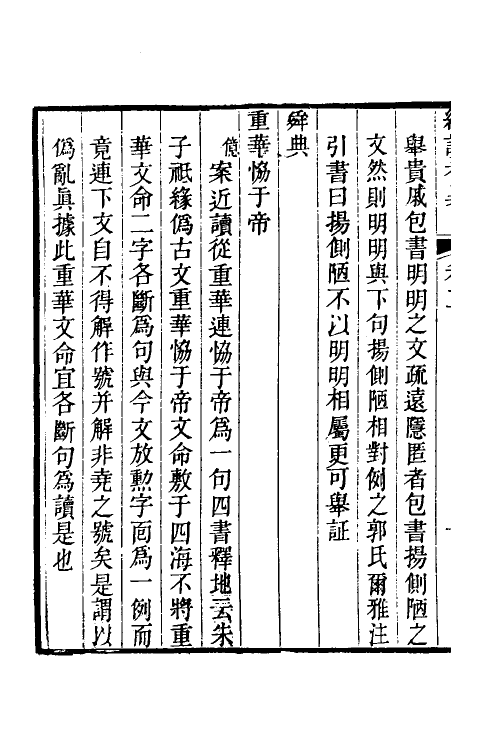 舉貴戚包書明明之文疏遠隱匿者包書揚側陋之
文然則明明與下句揚側陋相對例之郭氏爾雅注
引書曰揚側陋不以明明相屬更可舉証
舜典
重華恊于帝
億案近讀從重華連恊于帝爲一句四書釋地云朱
子祇緣僞古文重華恊于帝文命敷于四海不將重
華文命二字各斷爲句與今文放勲字面爲一例而
竟連下文自不得解作號并解非堯之號矣是謂以
僞亂眞據此重華文命宜各斷句爲讀是也